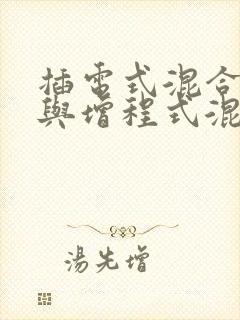 插電式混合
與增程式混
湯先增